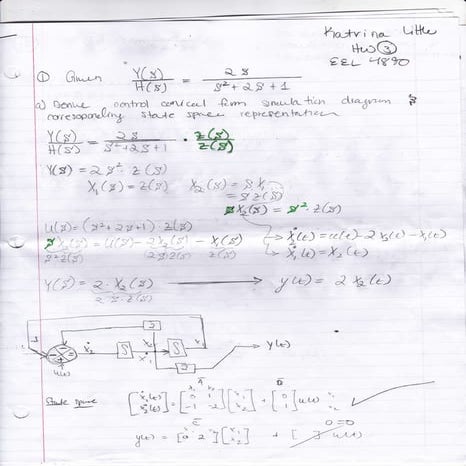 Katrina Little
HW ③
EEL 4890
① Given Y(s)/H(s) = 2s/(s²+2s+1)
a) Derive control conical form simulation diagram &
corresponding state space representation
Y(s)/H(s) = 2s/(s²+2s+1) · Z(s)/Z(s)
Y(s) = 2s² · Z(s)
X₁(s) = Z(s) X₂(s) = sX₁
= sZ(s)
sX₂(s) = s²·Z(s)
U(s) = (s²+2s+1)·Z(s)
sX₂(s) = U(s) - 2X₂(s) - X₁(s) → ẋ₂(t) = u(t) - 2x₂(t) - x₁(t)
s²Z(s) 2sZ(s) Z(s) ẋ₁(t) = X₂(t)
Y(s) = 2·X₂(s) → y(t) = 2x₂(t)
2·s·Z(s)
ẋ₂ S ẋ₁ S 2 Y(t)
u(t)
A B
State space [ẋ₁(t) ẋ₂(t)] = [0 1 -1 -2][x₁ x₂] + [0 1] u(t)
C D=0
y(t) = [0 2][x₁ x₂] + [ ] u(t)